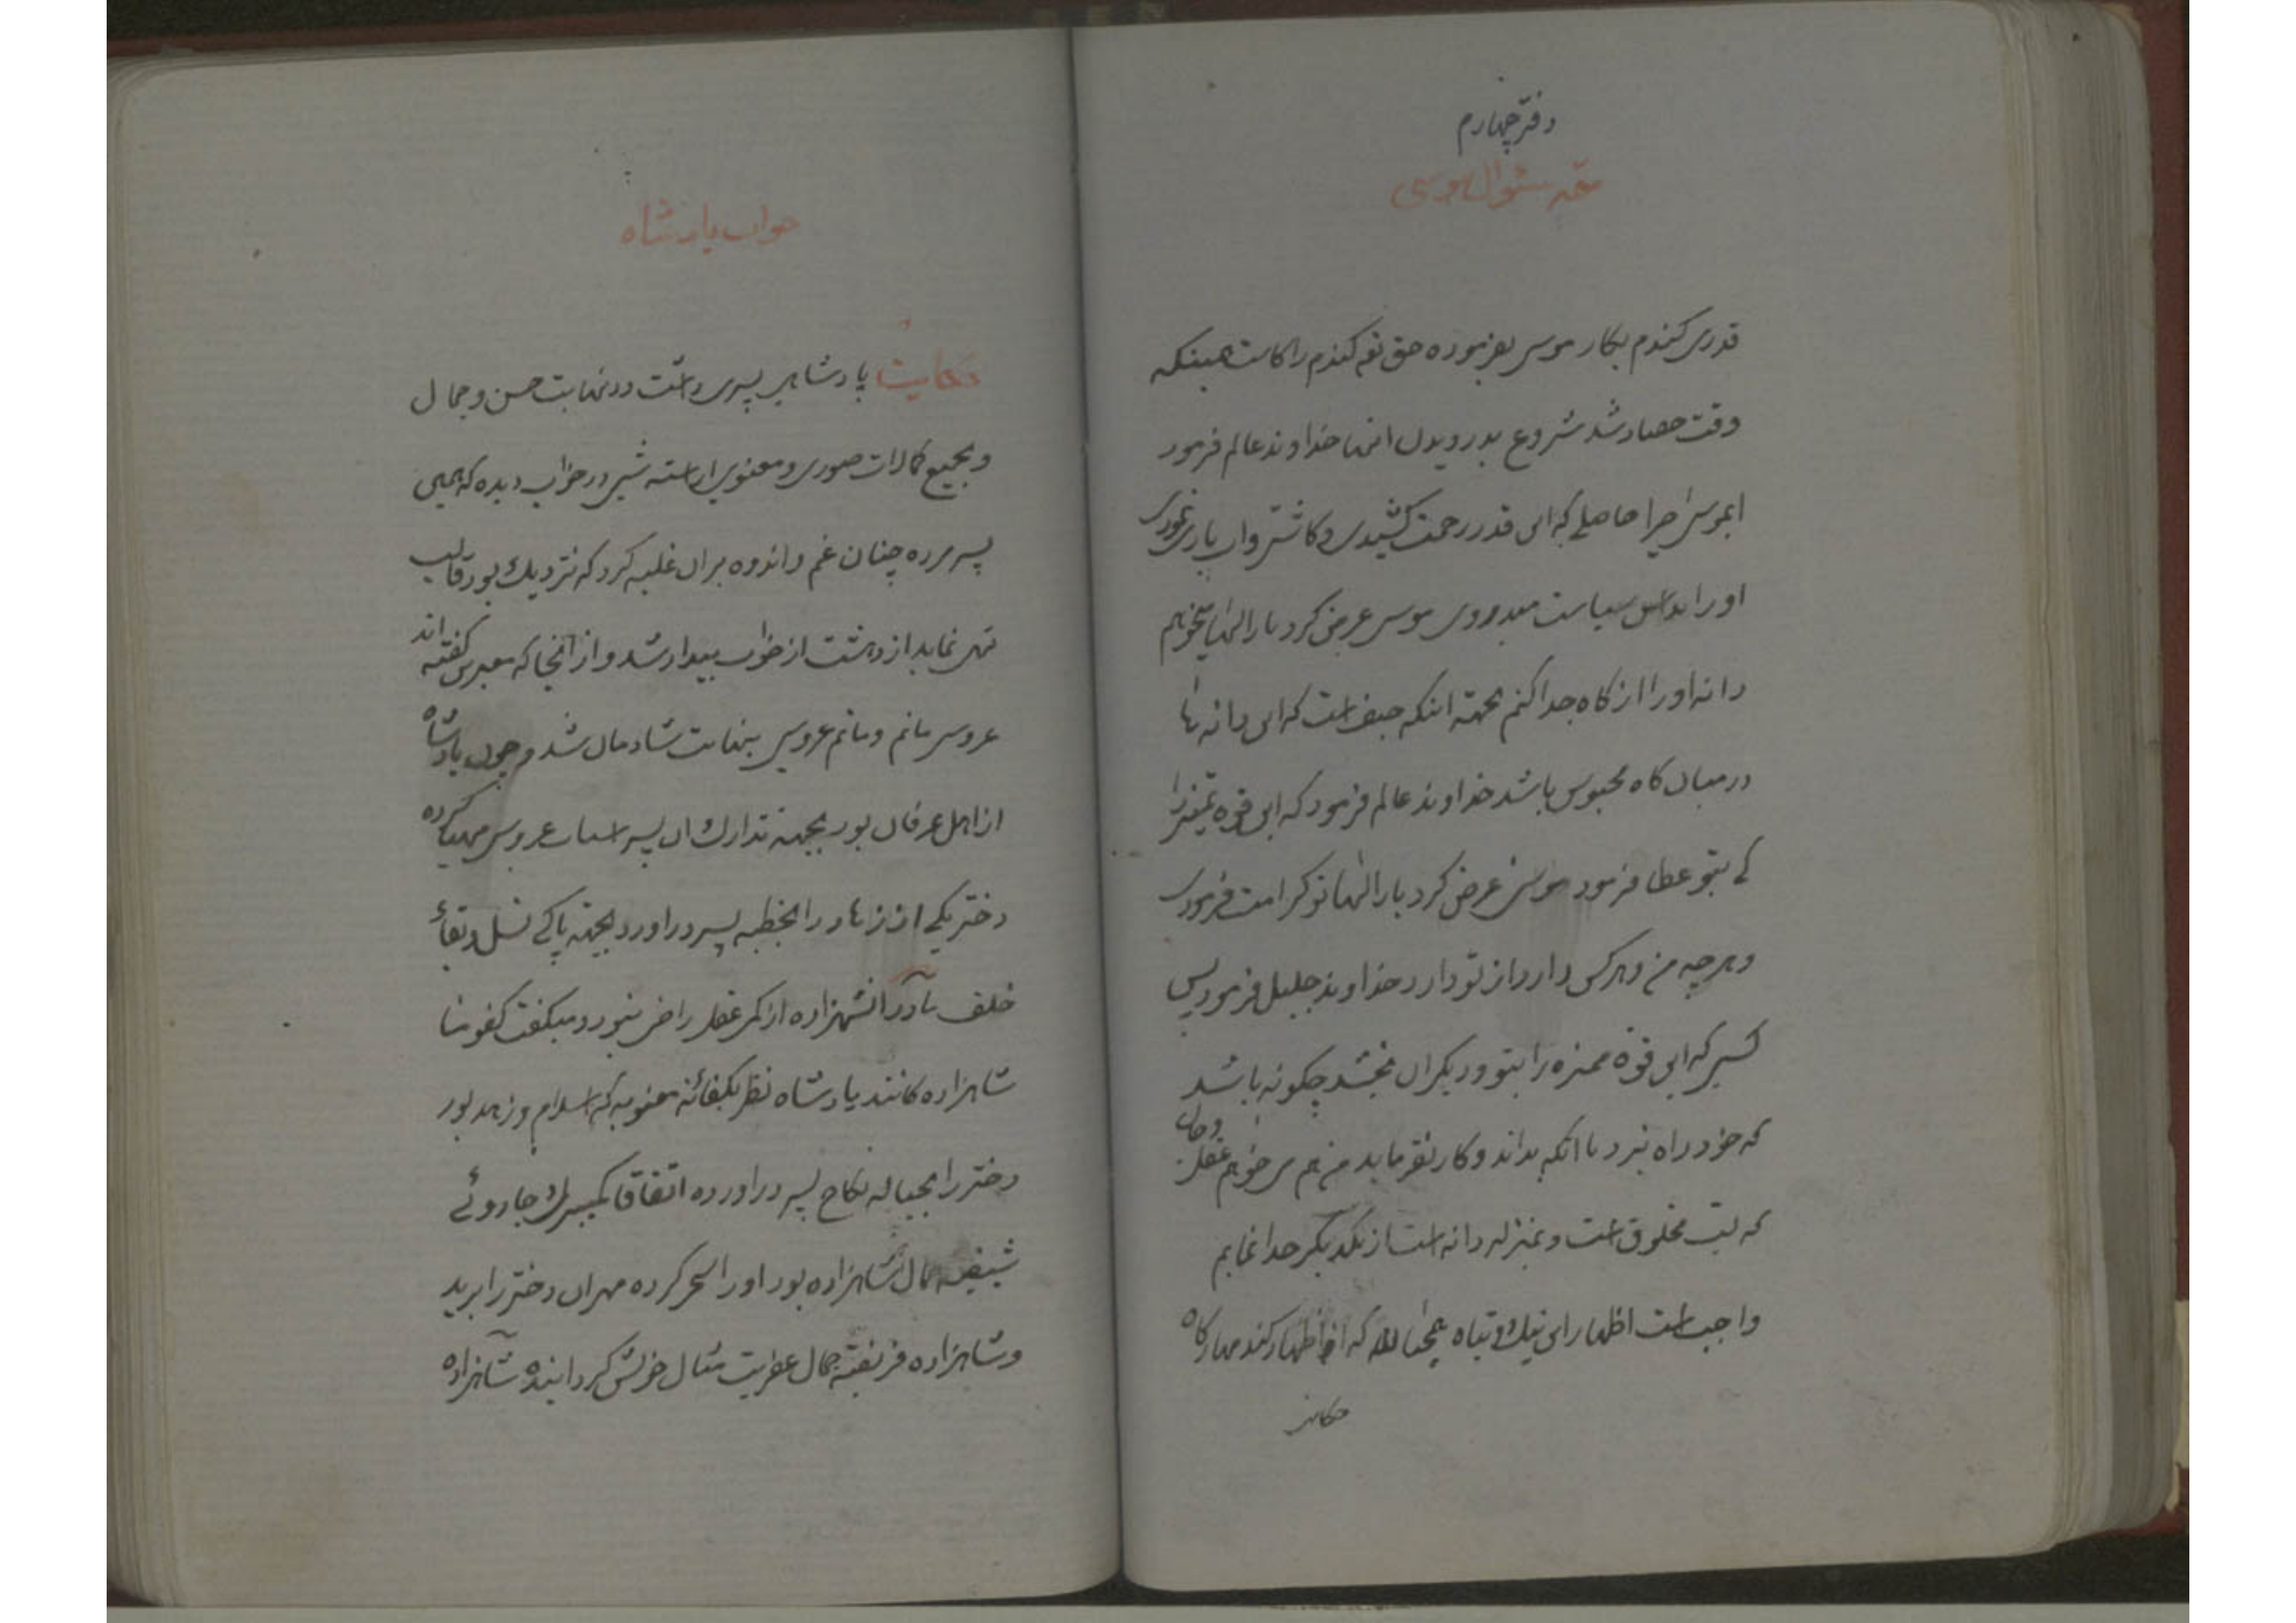 دفتر چهارم
سئوال موسی
قدری کندم بکار موسی بفرموده حق تع کندم را کاشت همینکه
وقت حصاد شد شروع بدرویدن انها خداوند عالم فرمود
ایموسی چرا حاصلے که این قدر زحمت کشیدی و کاشتی و اب یاری نمودی
او را سیاست موسی عرض کرد بار الها میخواهم
دانه او را از کاه جدا کنم بجهته اینکه حیف است که این دانه ها
در میان کاه محبوس باشد خداوند عالم فرمود که این قوه تمیز را
کے بتو عطا فرمود موسی عرض کرد بار الها تو کرامت فرمودی
و هر چه من و هر کس دارد از تو دارد خداوند جلیل فرمود پس
کسی که این قوه ممیزه را بتو و دیکران بخشد چکونه باشد
که خود راه نبرد با انکه بداند و کار نفرماید من هم می خواهم
که مخلوق است و بمنزله دانه است از یکدیکر جدا نمایم
واجب است اظهار این نیک و تباه همچنان که اظهار کندمها ز کاه
حکایت
جواب پادشاه
حکایت پادشاهی پسری داشت در نهایت حسن و جمال
و بجمیع کمالات صوری و معنوی اراسته شبی در خواب دیده که همین
پسر مرده چنان غم و اندوه بر ان غلبه کرد که نزدیک بود قالب
تهی نماید از دهشت از خواب بیدار شد و از انجا که معبرین کفته اند
عروسی ماتم و ماتم عروسی بنهایت شادمان شد و چون پادشاه
از اهل عرفان بود بجهته تدارک ان پسر اسباب عروسی مهیا کرده
دختر یکے از زهاد را بخطبه پسر در اورد بجهته پاکے نسل و بقاء
خلف مادر انشهزاده از کم عقلی راضی نبود و میکفت کفو ما
شاهزاده کانند پادشاه نظر بکفائه معنویه که اسلام و زهد بود
دختر را بحباله نکاح پسر در اورده اتفاقا کمپیرک جادوئے
شیفته جمال شاهزاده بود او را سحر کرده مهر ان دختر را برید
و شاهزاده فریفته جمال عفریت مثال خویش کردانید شاهزاده